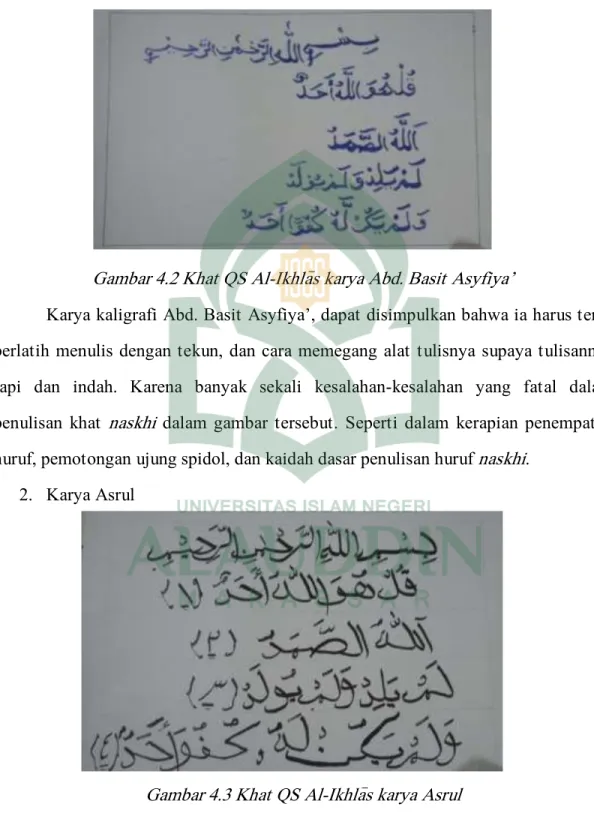 بِسْمِ اللّٰهِ الرَّحْمٰنِ الرَّحِيْمِ
قُلْ هُوَ اللّٰهُ أَحَدٌ
اَللّٰهُ الصَّمَدُ
لَمْ يَلِدْ وَلَمْ يُوْلَدْ
وَلَمْ يَكُنْ لَّهٗ كُفُوًا أَحَدٌ
Gambar 4.2 Khat QS Al-Ikhlās karya Abd. Basit Asyfīya’
Karya kaligrafi Abd. Basit Asyfiya’, dapat disimpulkan bahwa ia harus ter
berlatih menulis dengan tekun, dan cara memegang alat tulisnya supaya tulisann
rapi dan indah. Karena banyak sekali kesalahan-kesalahan yang fatal dala
penulisan khat naskhi dalam gambar tersebut. Seperti dalam kerapian penempat
huruf, pemotongan ujung spidol, dan kaidah dasar penulisan huruf naskhi.
2. Karya Asrul
UNIVERSITAS ISLAM NEGERI
ALAUDDIN
بِسْمِ اللّٰهِ الرَّحْمٰنِ الرَّحِيْمِ
قُلْ هُوَ اللّٰهُ أَحَدٌ (١)
اَللّٰهُ الصَّمَدُ (٢)
لَمْ يَلِدْ وَلَمْ يُوْلَدْ (٣)
وَلَمْ يَكُنْ لَهُ، كُفُوًا أَحَدٌ (٤)
Gambar 4.3 Khat QS Al-Ikhlās karya Asrul